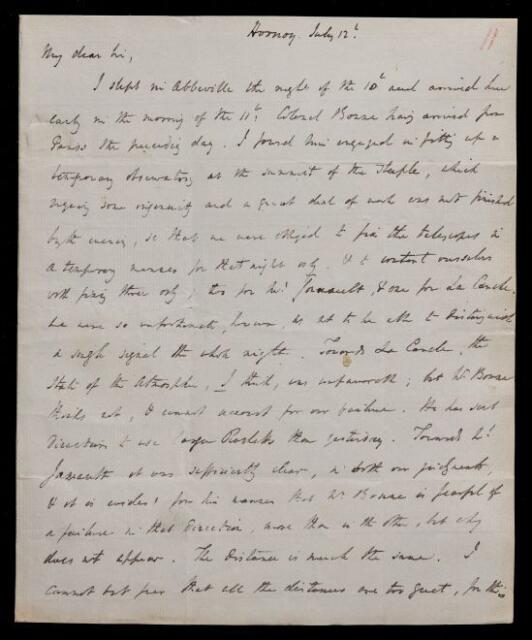 Hornoy. July 12th.
My dear Sir,
I slept in Abbeville the night of the 10th and arrived here
early in the morning of the 11th. Colonel Bonne having arrived from
Paris the preceding day. I found him engaged in fitting up a
temporary observatory at the summit of the Steeple, which
requiring some ingenuity and a great deal of work was not finished
by the evening, so that we were obliged to fix the telescopes in
a temporary manner for that night only. & to content ourselves
with fixing three only, two for Mt. & one for La Canche.
We were so unfortunate, however, as not to be able to distinguish
a single signal the whole night. Towards La Canche, the
State of the Atmosphere, I think, was unfavorable; but Mr Bonne
thinks not, & cannot account for our failure. He has sent
Directions to use larger Rockets than yesterday. Towards Mt.
it was sufficiently clear, in both our judgments,
& it is evident from his manner that Mr Bonne is fearful of
a failure in that Direction, more than in the other, but why
does not appear. The Distance is much the same. I
cannot but fear that all the distances are too great, for the